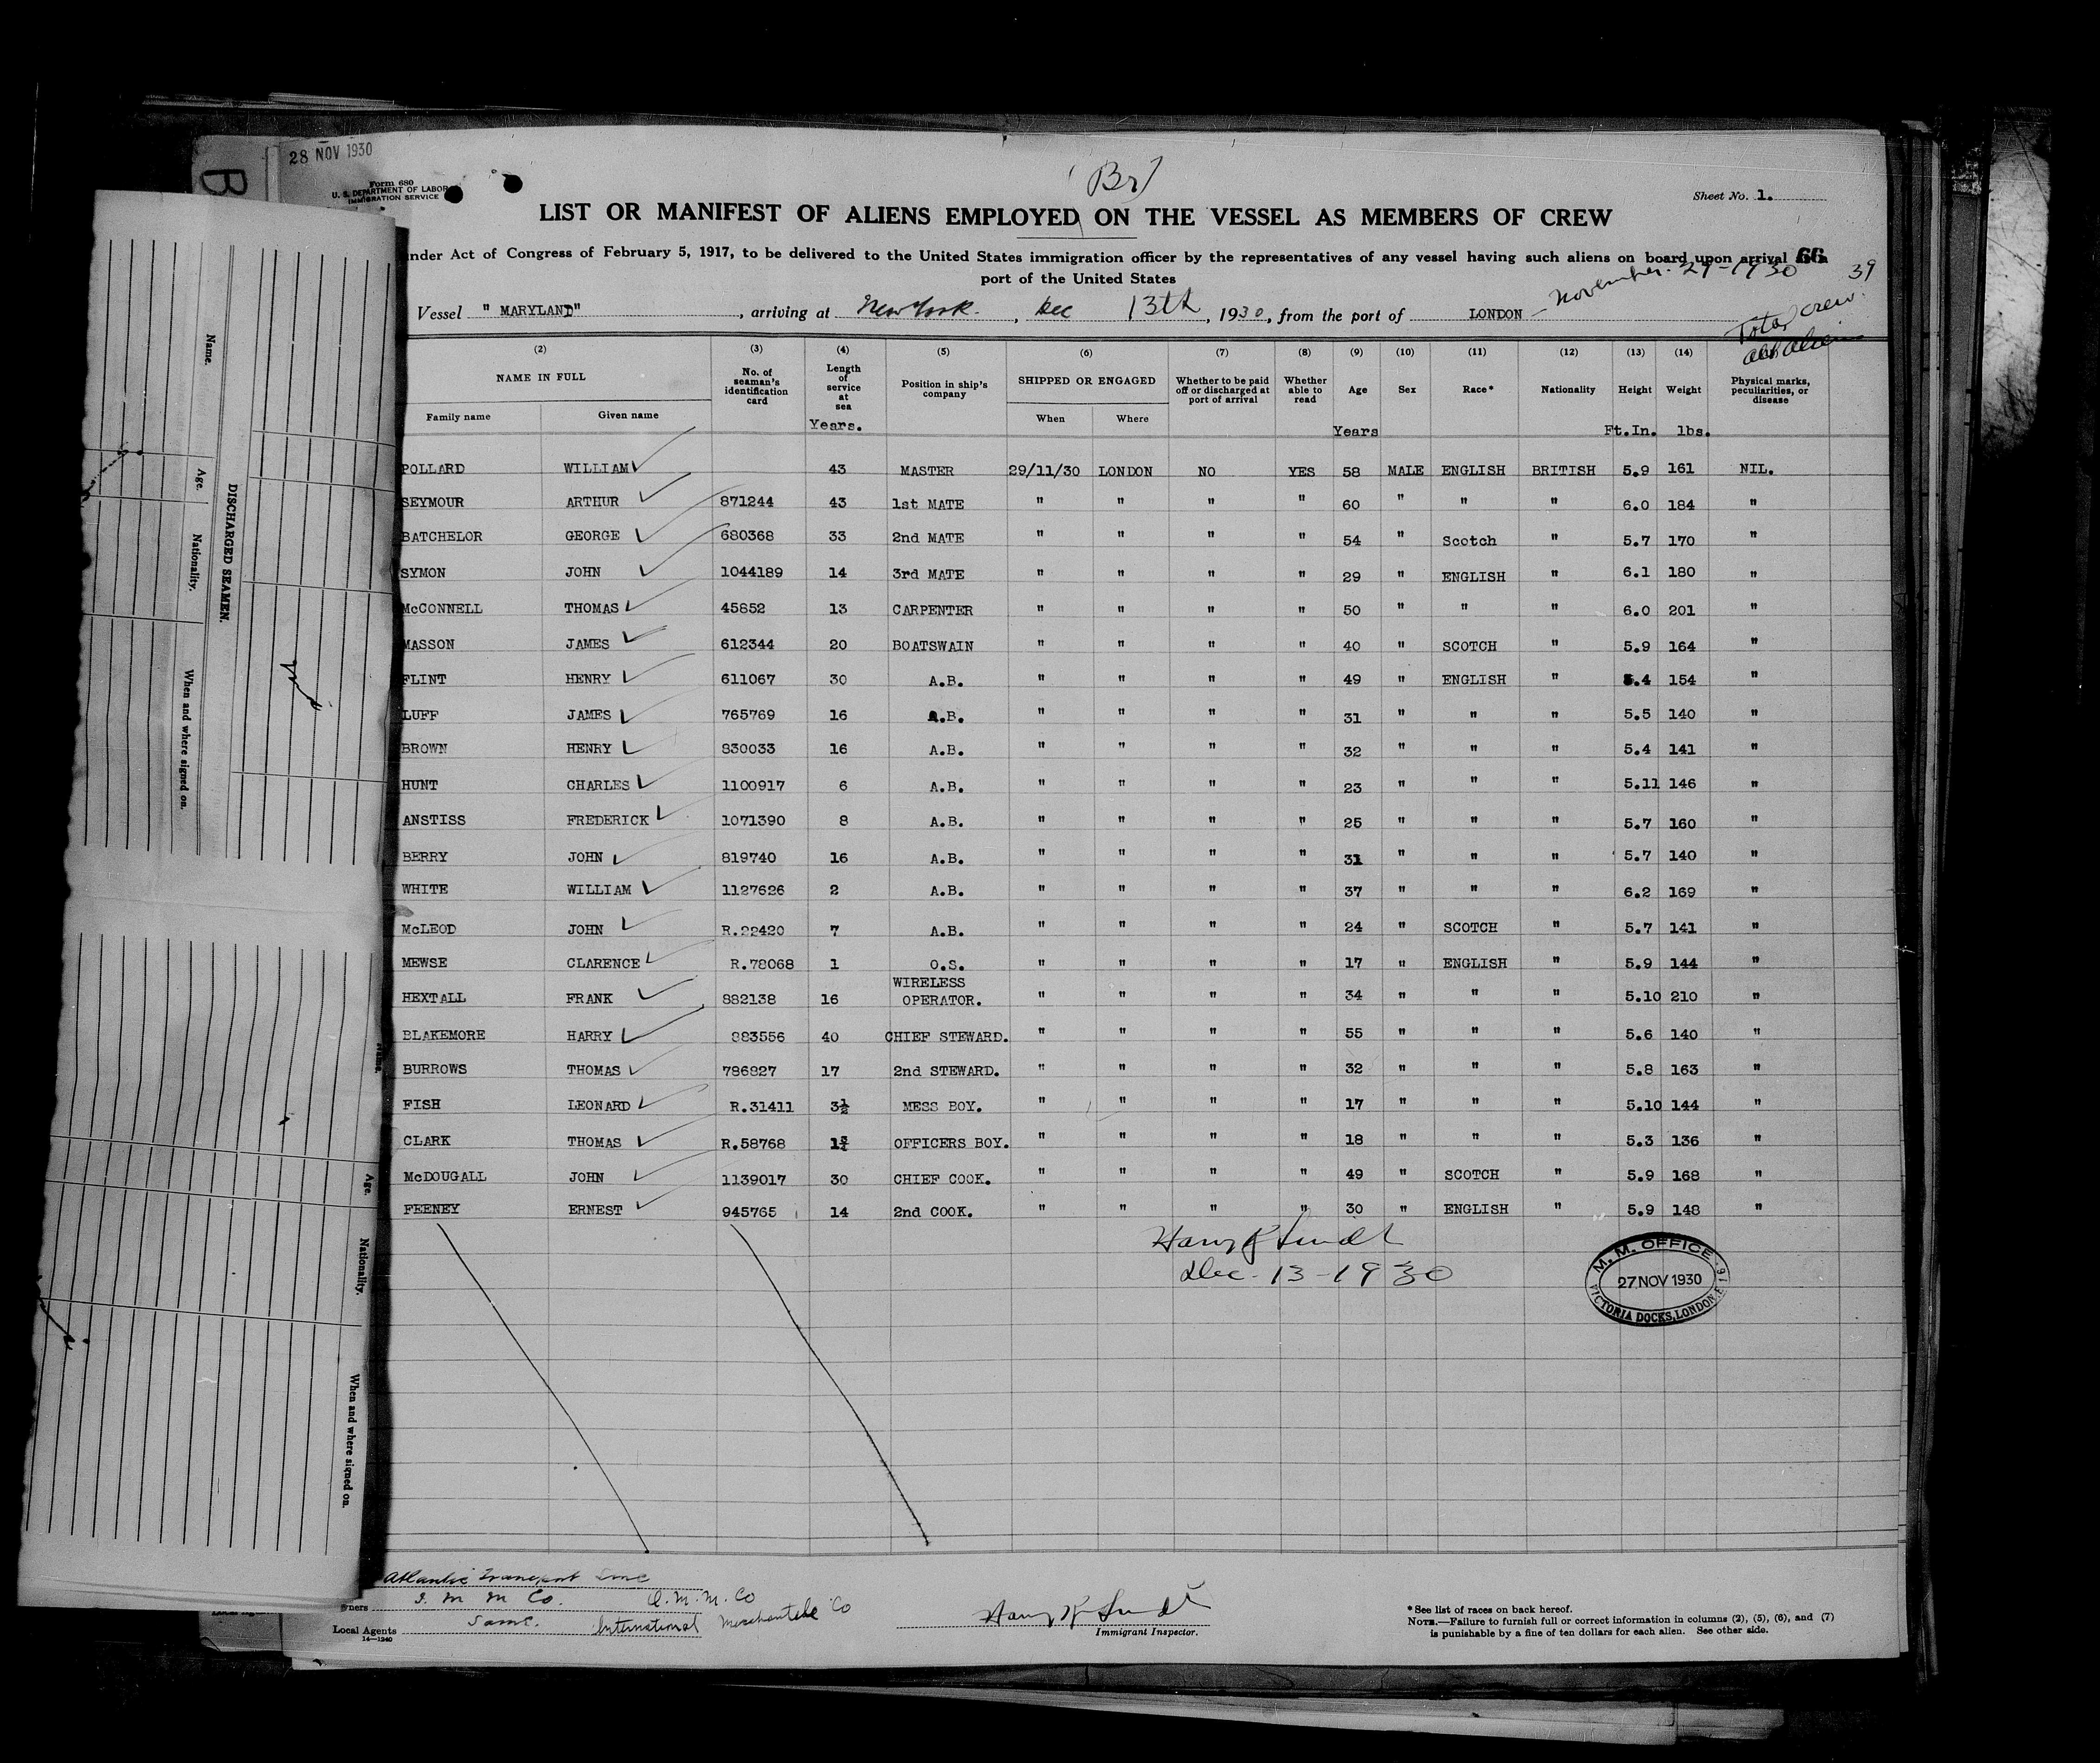 28 NOV 1930
B
Form 680
U. S. DEPARTMENT OF LABOR
IMMIGRATION SERVICE
(Br)
Sheet No. 1.
LIST OR MANIFEST OF ALIENS EMPLOYED ON THE VESSEL AS MEMBERS OF CREW
under Act of Congress of February 5, 1917, to be delivered to the United States immigration officer by the representatives of any vessel having such aliens on board upon arrival at a
66
port of the United States
Vessel " MARYLAND" , arriving at New York. , Dec 13th , 1930, from the port of LONDON – November. 29-1930
39
Total crew.
all alien
(2) (3) (4) (5) (6) (7) (8) (9) (10) (11) (12) (13) (14)
NAME IN FULL
Family name Given name
No. of seaman's identification card
Length of service at sea
Years.
Position in ship's company
SHIPPED OR ENGAGED
When Where
Whether to be paid off or discharged at port of arrival
Whether able to read
Age
Years
Sex
Race*
Nationality
Height
Ft.In.
Weight
lbs.
Physical marks, peculiarities, or disease
POLLARD WILLIAM 43 MASTER 29/11/30 LONDON NO YES 58 MALE ENGLISH BRITISH 5.9 161 NIL.
SEYMOUR ARTHUR 871244 43 1st MATE " " " " 60 " " " 6.0 184 "
BATCHELOR GEORGE 680368 33 2nd MATE " " " " 54 " Scotch " 5.7 170 "
SYMON JOHN 1044189 14 3rd MATE " " " " 29 " ENGLISH " 6.1 180 "
McCONNELL THOMAS 45852 13 CARPENTER " " " " 50 " " " 6.0 201 "
MASSON JAMES 612344 20 BOATSWAIN " " " " 40 " SCOTCH " 5.9 164 "
FLINT HENRY 611067 30 A.B. " " " " 49 " ENGLISH " 5.4 154 "
LUFF JAMES 765769 16 A.B. " " " " 31 " " " 5.5 140 "
BROWN HENRY 830033 16 A.B. " " " " 32 " " " 5.4 141 "
HUNT CHARLES 1100917 6 A.B. " " " " 23 " " " 5.11 146 "
ANSTISS FREDERICK 1071390 8 A.B. " " " " 25 " " " 5.7 160 "
BERRY JOHN 819740 16 A.B. " " " " 31 " " " 5.7 140 "
WHITE WILLIAM 1127626 2 A.B. " " " " 37 " " " 6.2 169 "
McLEOD JOHN R.22420 7 A.B. " " " " 24 " SCOTCH " 5.7 141 "
MEWSE CLARENCE R.78068 1 O.S. " " " " 17 " ENGLISH " 5.9 144 "
HEXTALL FRANK 882138 16 WIRELESS OPERATOR. " " " " 34 " " " 5.10 210 "
BLAKEMORE HARRY 883556 40 CHIEF STEWARD. " " " " 55 " " " 5.6 140 "
BURROWS THOMAS 786827 17 2nd STEWARD. " " " " 32 " " " 5.8 163 "
FISH LEONARD R.31411 3½ MESS BOY. " " " " 17 " " " 5.10 144 "
CLARK THOMAS R.58768 OFFICERS BOY. " " " " 18 " " " 5.3 136 "
McDOUGALL JOHN 1139017 30 CHIEF COOK. " " " " 49 " SCOTCH " 5.9 168 "
FEENEY ERNEST 945765 14 2nd COOK. " " " " 30 " ENGLISH " 5.9 148 "
Dec-13-1930
M. M. OFFICE
27 NOV 1930
VICTORIA DOCKS, LONDON. E. 16.
Atlantic Transport Line
Owners I. M. M Co. I. M. M. Co
Local Agents Same. International Merchantile Co
14—1240
Immigrant Inspector.
* See list of races on back hereof.
NOTE.—Failure to furnish full or correct information in columns (2), (5), (6), and (7)
is punishable by a fine of ten dollars for each alien. See other side.
DISCHARGED SEAMEN.
Name. Age. Nationality. When and where signed on.
Name. Age. Nationality. When and where signed on.